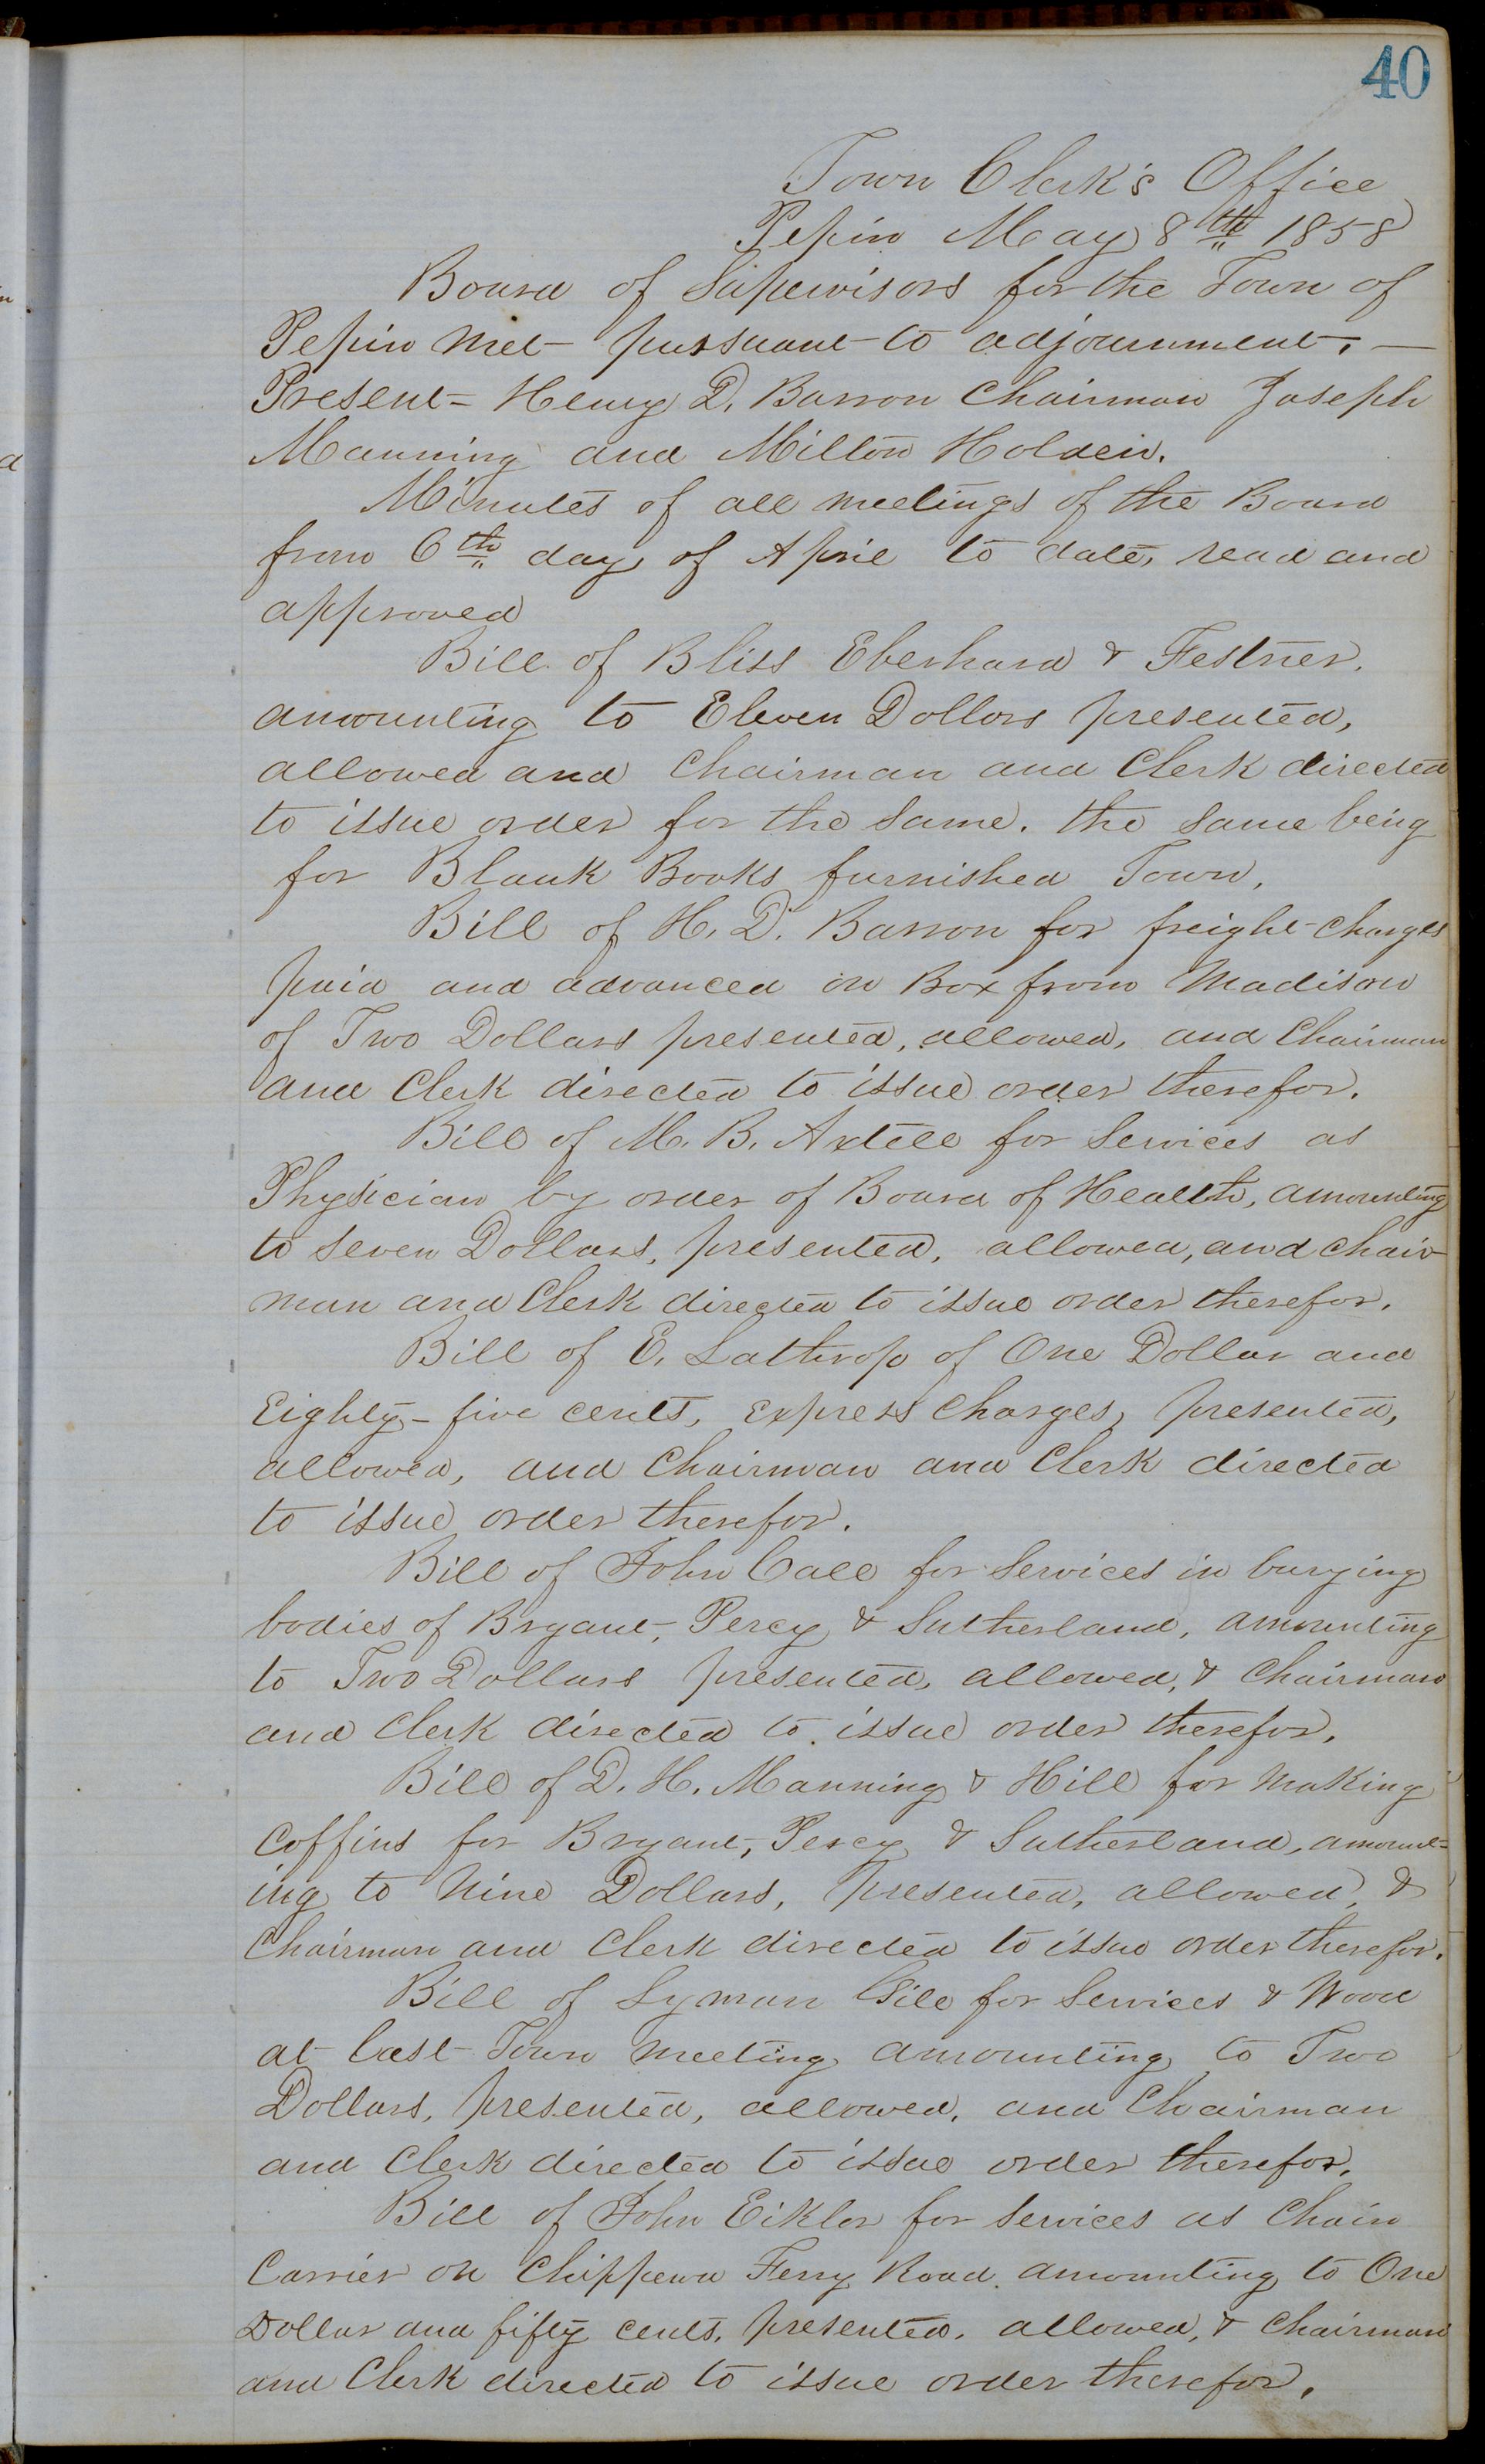 40
Town Clerk's Office
Pepin May 8th 1858
Board of Supervisors for the Town of
Pepin met pursuant to adjournment. —
Present - Henry D. Barron Chairman Joseph
Manning and Milton Holden.
Minutes of all meetings of the Board
from 6th day of April to date, read and
approved
Bill of Bliss Eberhard & Festner.
amounting to Eleven Dollars presented,
allowed and Chairman and Clerk directed
to issue order for the same. the same being
for Blank Books furnished Town.
Bill of H. D. Barron for freight charges
paid and advanced on Box from Madison
of Two Dollars presented, allowed, and Chairman
and Clerk directed to issue order therefor.
Bill of M. B. Axtell for Services as
Physician by order of Board of Health, amounting
to Seven Dollars, presented, allowed, and Chair-
man and Clerk directed to issue order therefor.
Bill of E. Lathrop of One Dollar and
Eighty-five cents, express charges, presented,
allowed, and Chairman and Clerk directed
to issue order therefor.
Bill of John Call for Services in burying
bodies of Bryant, Percy & Sutherland, amounting
to Two Dollars presented, allowed, & Chairman
and Clerk directed to issue order therefor.
Bill of D. H. Manning & Hill for making
Coffins for Bryant, Percy & Sutherland, amount-
ing to Nine Dollars, presented, allowed, &
Chairman and Clerk directed to issue order therefor.
Bill of Lyman Gile for Services & Wood
at last Town meeting amounting to Two
Dollars, presented, allowed, and Chairman
and Clerk directed to issue order therefor.
Bill of John Eiklor for Services as Chain
Carrier on Chippewa Ferry Road, amounting to One
Dollar and fifty cents, presented, allowed, & Chairman
and Clerk directed to issue order therefor.